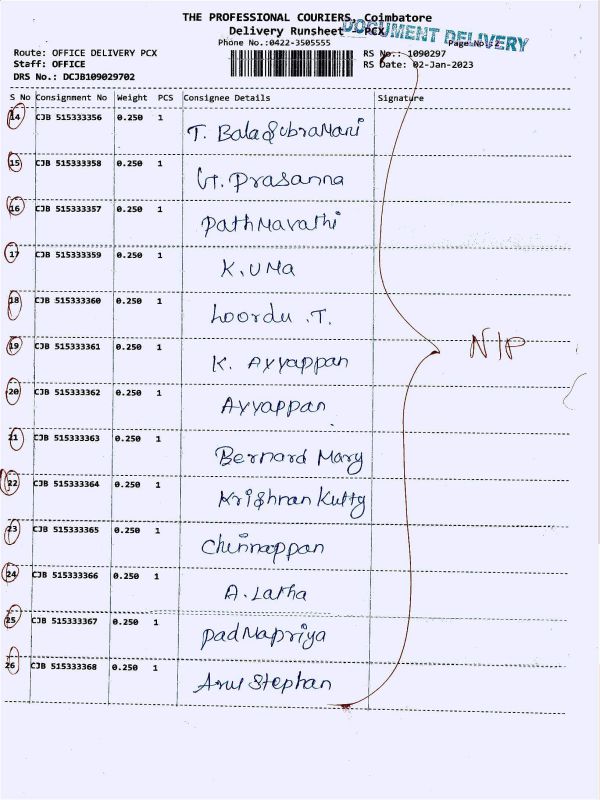 THE PROFESSIONAL COURIERS, Coimbatore
Delivery Runsheet - PCX
DOCUMENT DELIVERY
Phone No.:0422-3505555
Page No
Route: OFFICE DELIVERY PCX
RS No.: 1090297
Staff: OFFICE
RS Date: 02-Jan-2023
DRS No.: DCJB109029702
S No Consignment No Weight PCS Consignee Details Signature
14 CJB 515333356 0.250 1 T. Balasubramani
15 CJB 515333358 0.250 1 G. Prasanna
16 CJB 515333357 0.250 1 Pathmavathi
17 CJB 515333359 0.250 1 K. Uma
18 CJB 515333360 0.250 1 Loordu .T.
19 CJB 515333361 0.250 1 K. Ayyappan
20 CJB 515333362 0.250 1 Ayyappan
21 CJB 515333363 0.250 1 Bernard Mary
22 CJB 515333364 0.250 1 Krishnan Kutty
23 CJB 515333365 0.250 1 Chinnappan
24 CJB 515333366 0.250 1 A. Latha
25 CJB 515333367 0.250 1 Padmapriya
26 CJB 515333368 0.250 1 Arul Stephan
N/P